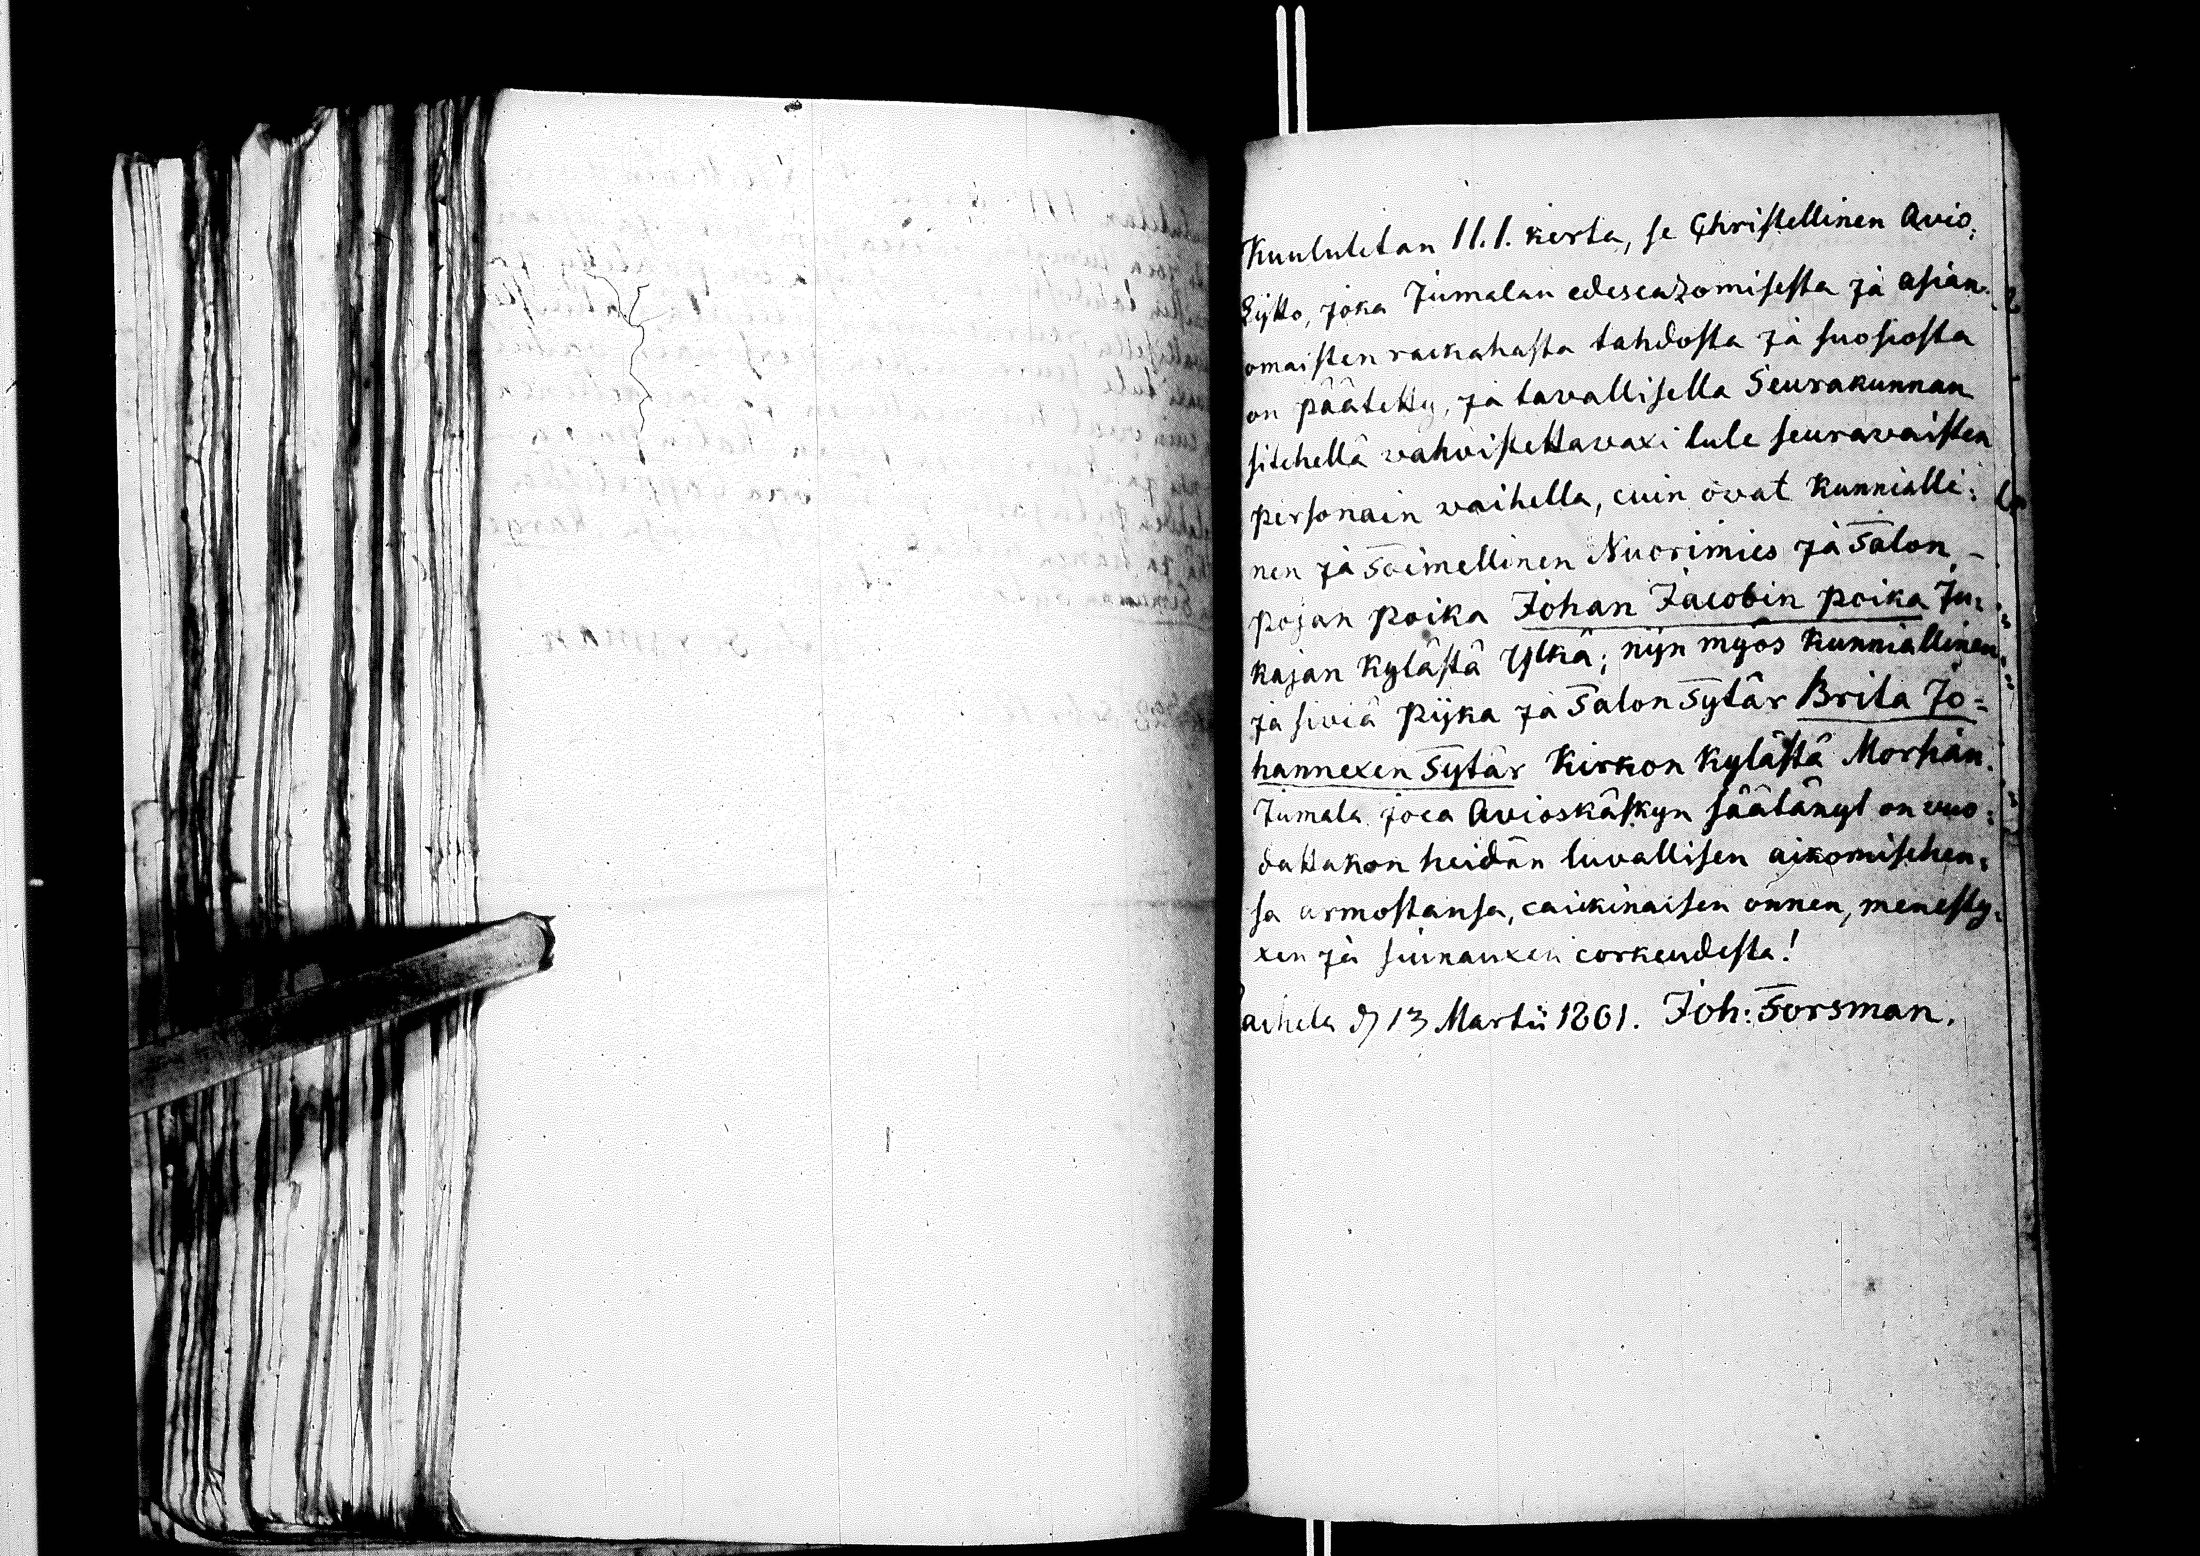 Kuulutetan 11.1. kerta, se Christellinen Avio:
Lijtto, joka Jumalan edeseazomisesta ja asian-
omaisten rackahasta tahdosta ja suosiosta
on päätetty, ja tavallisella Seurakunnan
sitehellä vahvistettavaxi tule seuravaisten
personain vaihella, cuin ovat Kunnialli:
nen ja Toimellinen Nuorimies ja Talon
pojan poika Johan Jacobin poika Ju:
kajan Kylästä Ylkä; nijn myös Kunniallinen
ja siviä pijka ja Talon Tytär Brita Jo=
hannexen Tytär Kirkon Kylästä Morsian.
Jumala joca Avioskäskyn säätänyt on vuo:
dattakon heidän luvallisen aikomisehen:
sa armostansa, caickinaisen onnen, menesty:
xen ja siunauxen corkeudesta!
Laihela d 13 Martii 1801. Joh: Forsman.